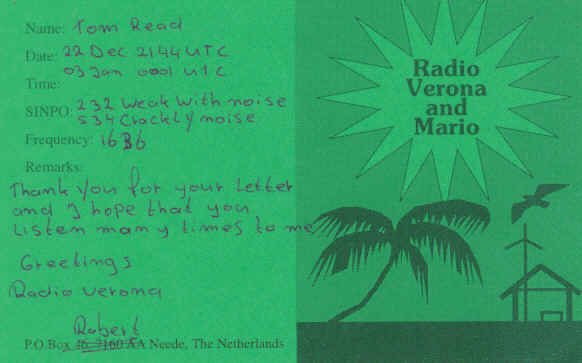 Name: Tom Read
Date: 22 Dec 2144 UTC
03 Jan 0001 UTC
Time:
SINPO: 232 Weak With noise
534 Crackly noise
Frequency: 1636
Remarks:
Thank you for your Letter
and I hope that you
Listen many times to me
Greetings
Radio Verona
Robert
P.O.Box 46, 7160 AA Neede, The Netherlands
Radio
Verona
and
Mario